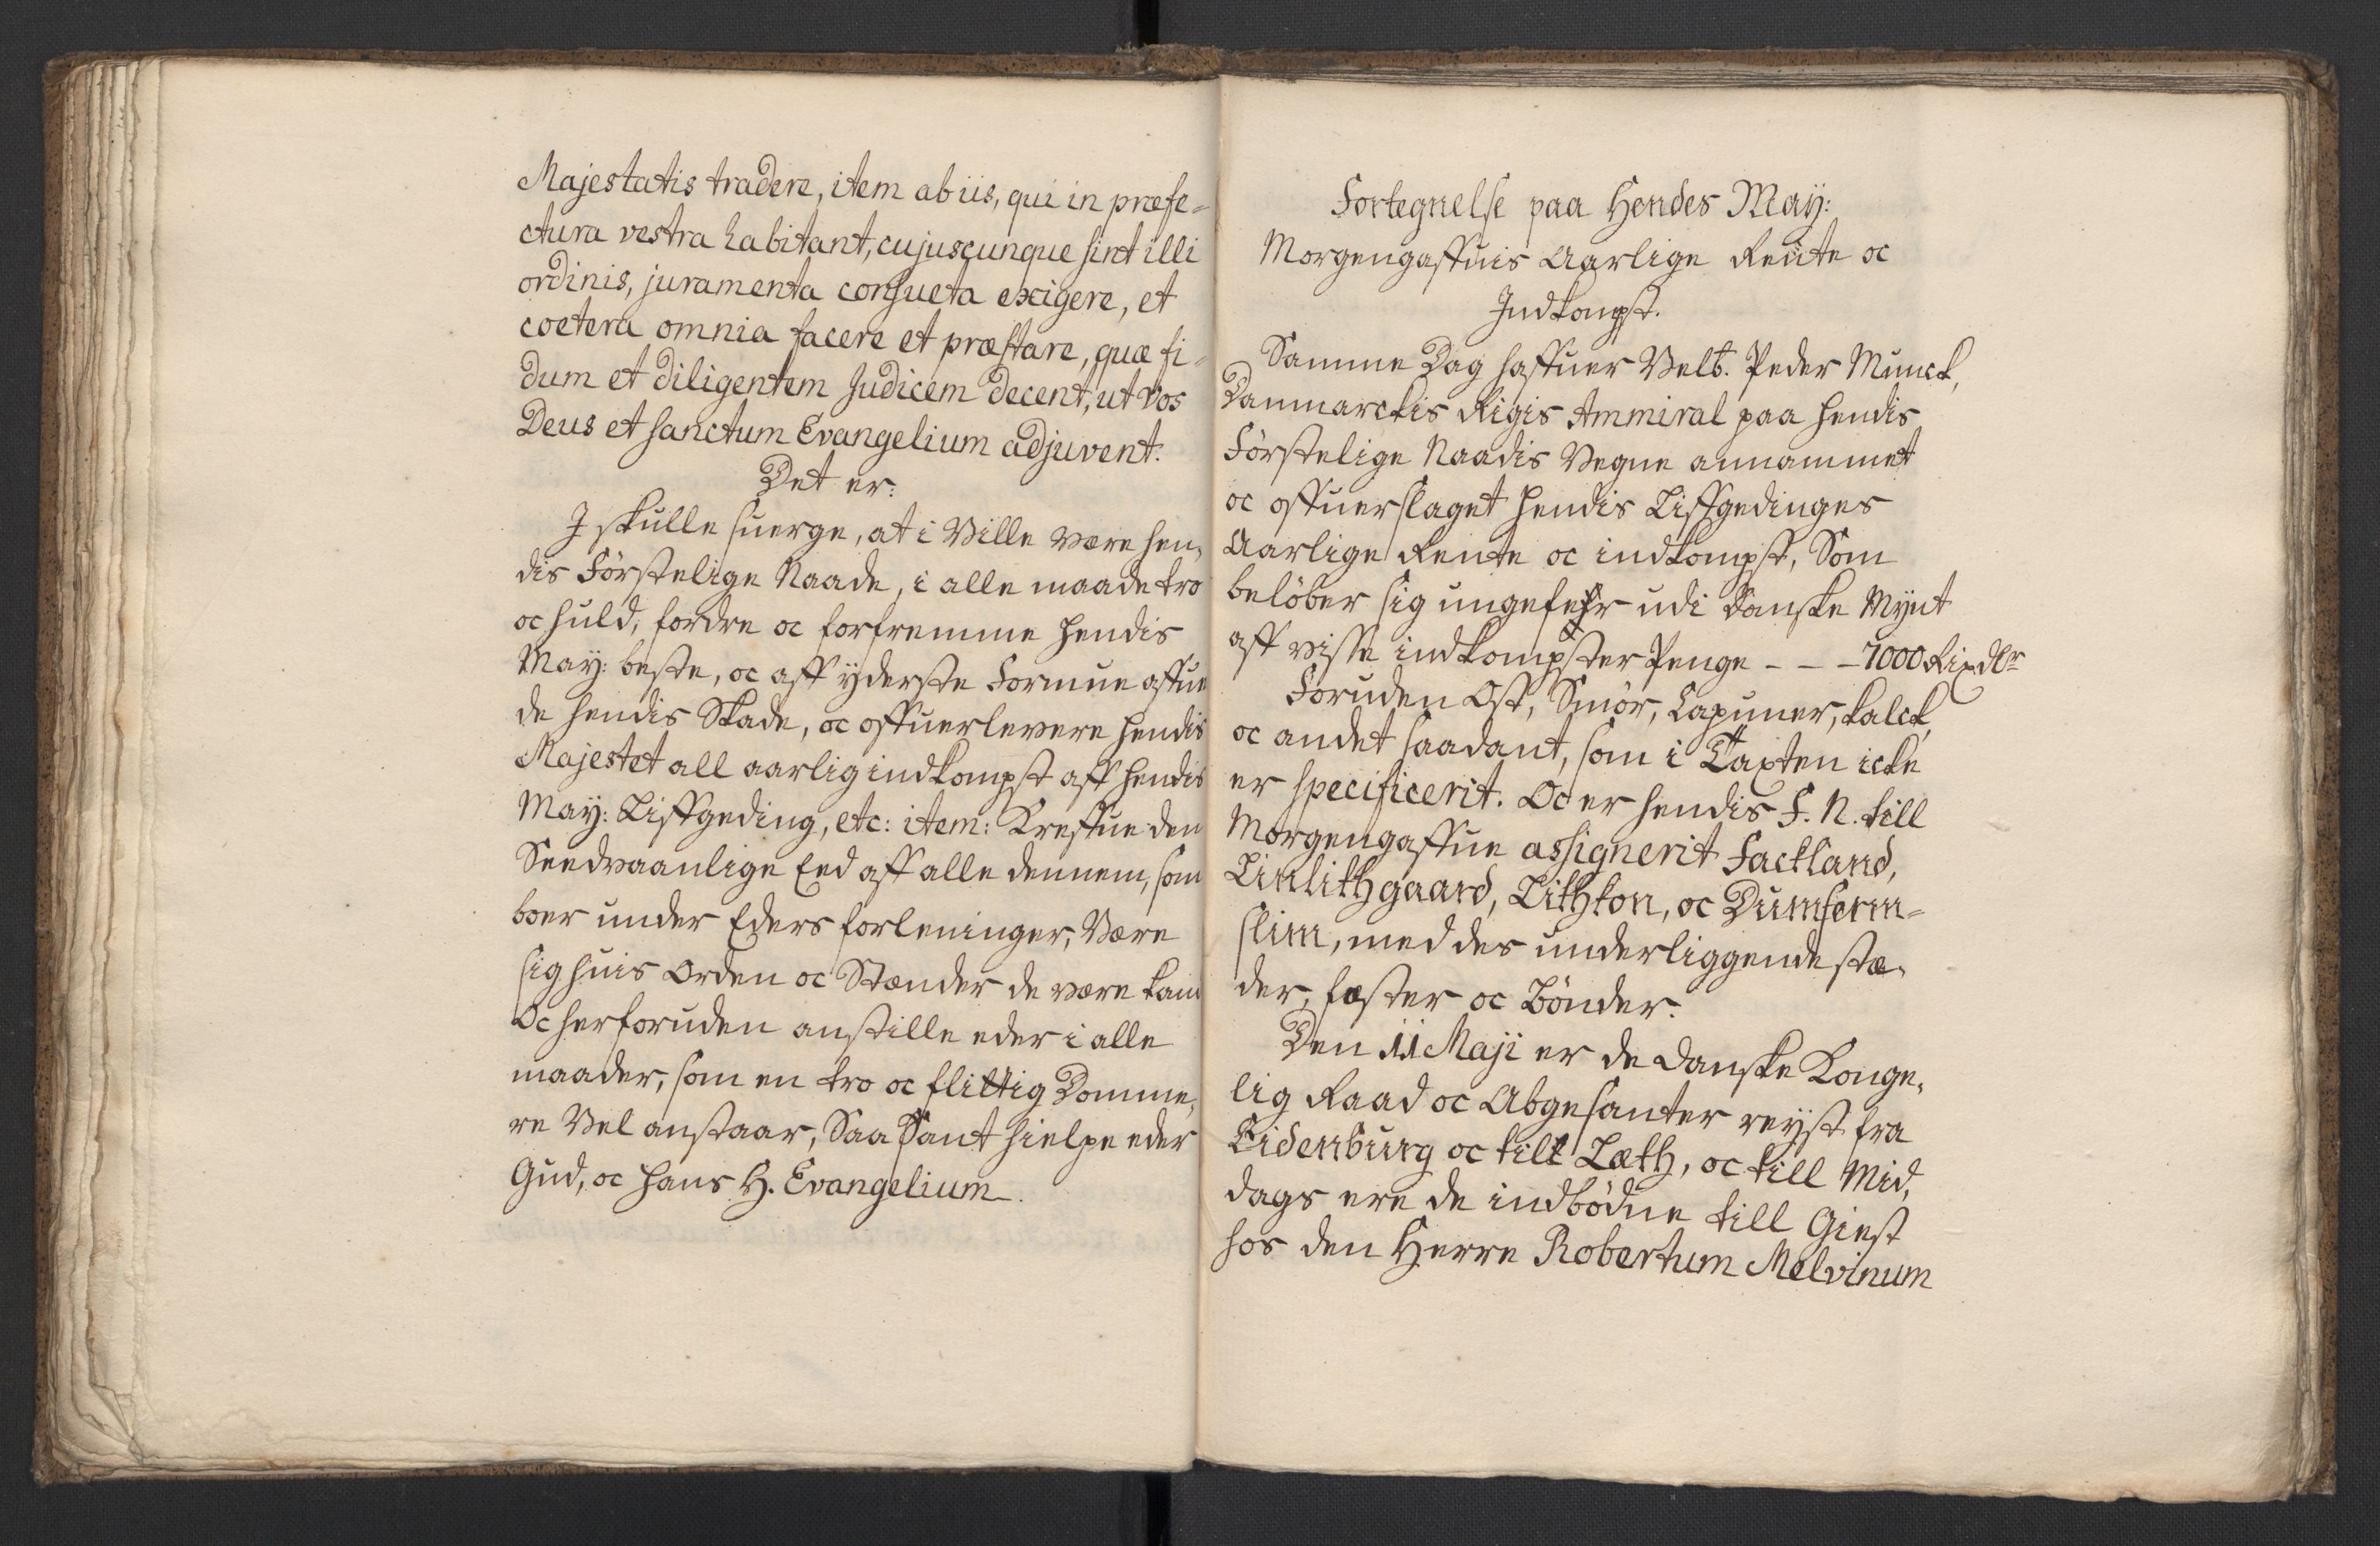 Majestatis tradere, item ab iis, qui in præfe-
ctura vestra habitant, cujuscunque sint illi
ordinis, juramenta consueta exigere, et
coetera omnia facere et præstare, quæ fi-
dum et diligentem Judicem decent, ut vos
Deus et sanctum Evangelium adjuvent.
Det er:
J skulle suerge, at i Ville være hen,
dis Förstelige Naade, i alle maade tro
oc huld, fordre oc forfremme hendis
May: beste, oc aff ÿderste Formue affue
de hendis Skade, oc offuerlevere hendis
Majestet all aarlig indkompst aff hendis
May: Liffgeding, etc: item: Kreffue den
Seedvaanlige Eed aff alle dennem, som
boer under Eders forleninger, Være
sig huis Orden oc Stænder de være kan
Oc herforuden anstille eder i alle
maader, som en tro oc flittig Domme,
re Vel anstaar, Saa Sant hielpe eder
Gud, oc hans H. Evangelium.
Fortegnelse paa Hendes May:
Morgengaffuis Aarlige Rente oc
Indkompst.
Samme Dag haffuer Velb. Peder Munck,
Danmarckis Rigis Ammiral paa hendis
Förstelige Naadis Vegne annammet
oc offuerslaget hendis Liffgedinges
Aarlige Rente oc indkompst, Som
belöber sig ungefehr udi Danske Mÿnt
aff visse indkompster Penge - - - 7000 Rixdlr
Foruden Ost, Smör, Capuner, kalck,
oc andet saadant, som i Taxten icke
er specificerit. Oc er hendis F. N. till
Morgengaffue assignerit Fackland,
Linlithgaard, Lithkon, oc Dumferm-
slim, med des underliggende stæ,
der, fæster oc Bönder.
Den 11 Maji er de Danske Konge,
lig Raad oc Abgesanter reÿst fra
Eidenburg oc till Læth, oc till Mid,
dags ere de indbödne till Giest
hos den Herre Robertum Melvinum